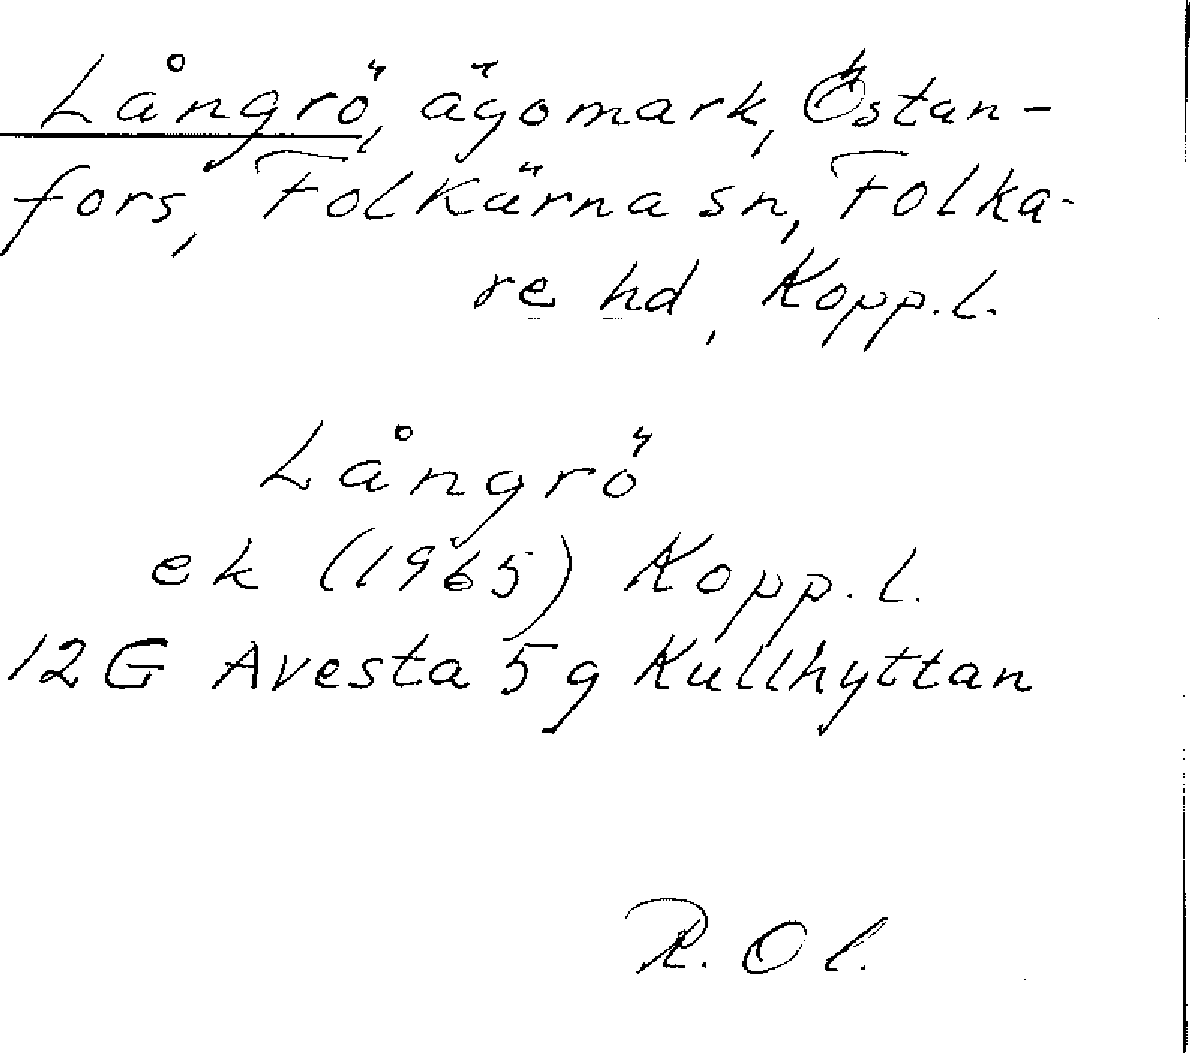 Långrö, ägomark, Östan-
fors, Folkärna sn, Folka-
re hd, Kopp.l.
Långrö
ek (1965) Kopp.l.
12G Avesta 5g Kullhyttan
R.Ol.